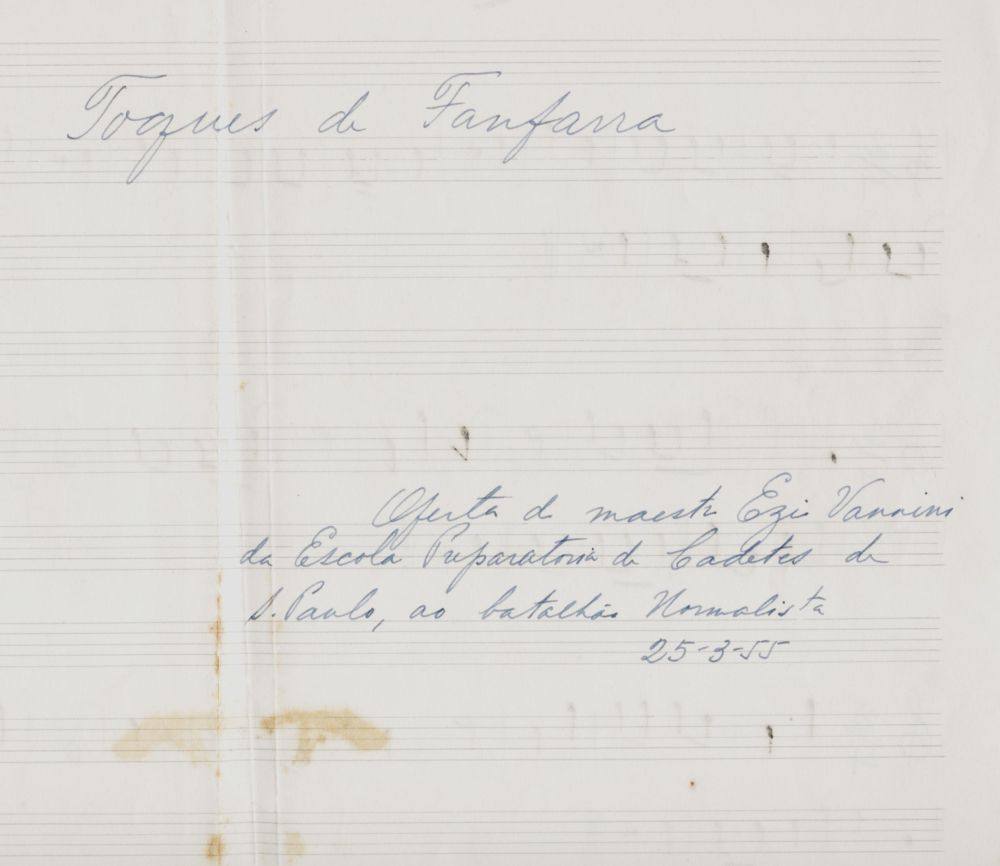 Toques de Fanfarra
Oferta do maestro Ezio Vannini
da Escola Preparatoria de Cadetes de
S. Paulo, ao batalhão Normalista
25-3-55